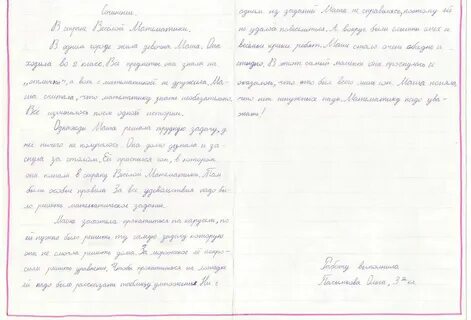 Сочинение.
В стране Весёлой Математики.
В одном городе жила девочка Маша. Она
ходила во 2 класс. Все предметы она знала на
"отлично", а вот с математикой не дружила. Ма-
ша считала, что математику знать необязательно.
Всё изменилось после одной истории.
Однажды Маша решала трудную задачу, у
неё ничего не получалось. Она долго думала и за-
снула за столом. Ей приснился сон, в котором
она попала в страну Весёлой Математики. Там
были особые правила. За все удовольствия надо бы-
ло решить математическое задание.
Маша захотела прокатиться на карусели, но
ей нужно было решить ту самую задачу, которую
она не смогла решить дома. За мороженое её попро-
сили решить уравнение. Чтобы прокатиться на лошадке
ей надо было рассказать таблицу умножения. Ни с
одним из заданий Маша не справилась, поэтому ей
не удалось повеселиться. А вокруг были слышны смех и
весёлые крики ребят. Маше стало очень обидно и
стыдно. В этот самый момент она проснулась и
оказалось, что это был всего лишь сон. Маша поняла,
что нет ненужных наук. Математику надо ува-
жать!
Работу выполнила
Ольга, 3 кл